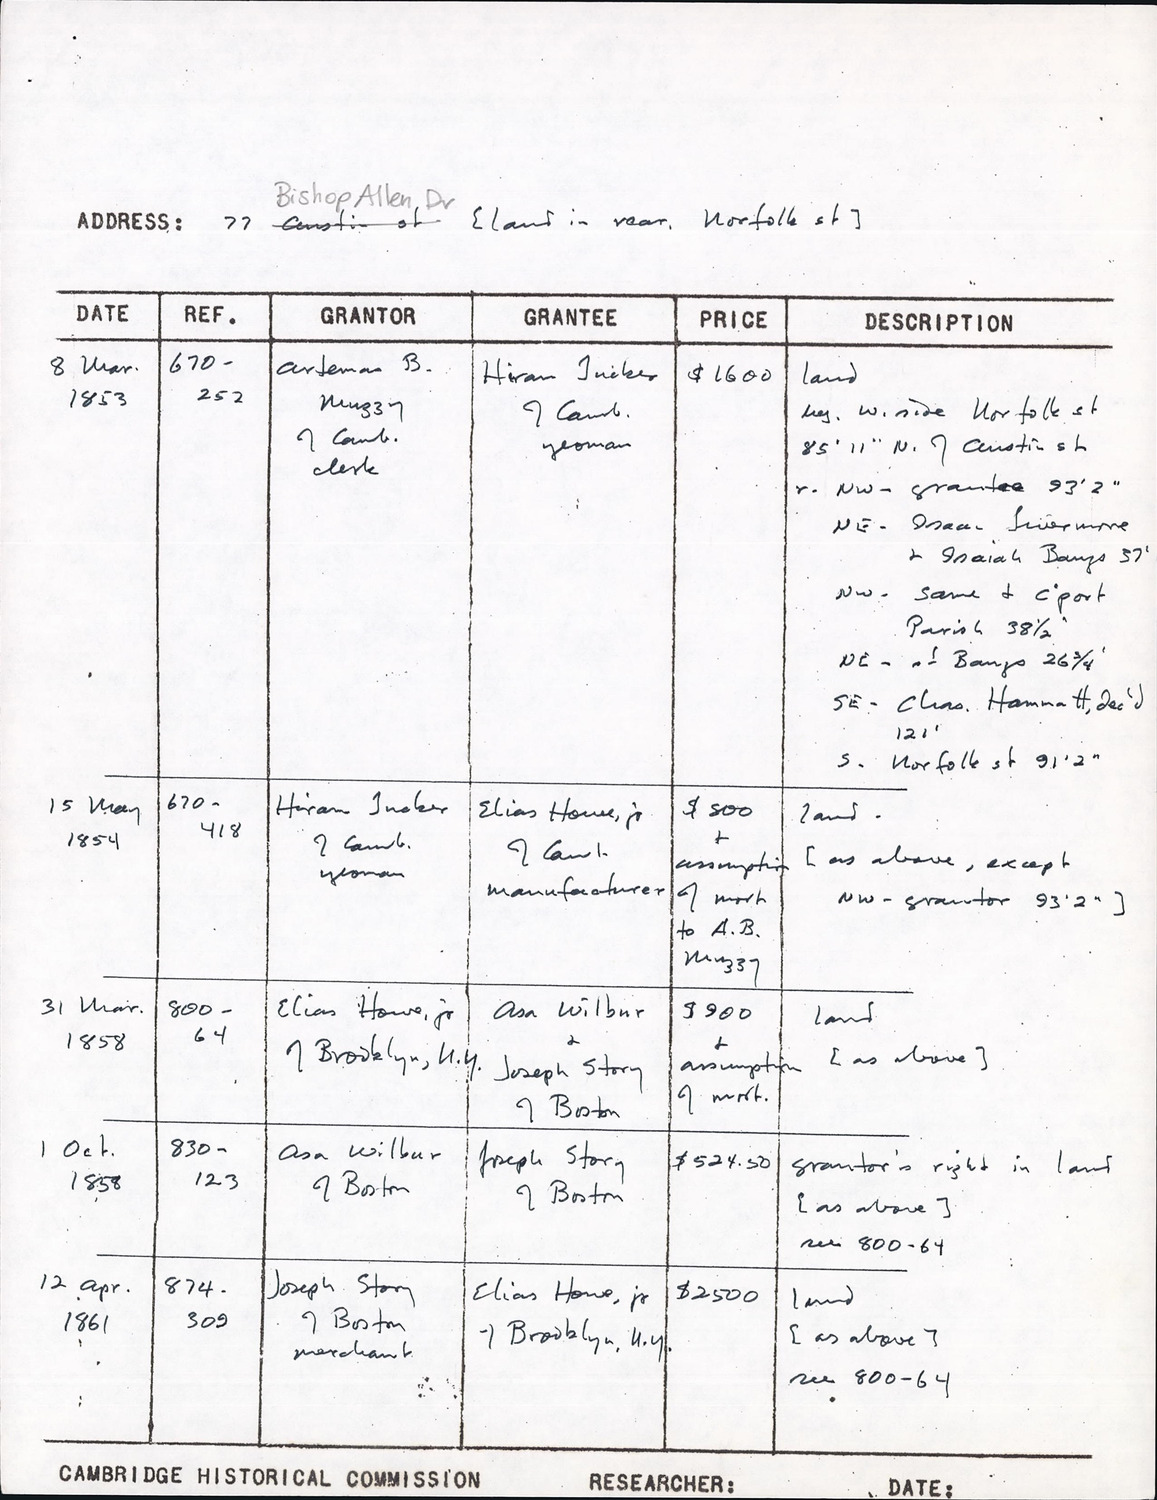 Bishop Allen Dr
ADDRESS: 77 Austin st [land in rear, Norfolk st]
DATE REF. GRANTOR GRANTEE PRICE DESCRIPTION
8 Mar. 1853
670-252
Artemas B. Muzzy
of Camb.
clerk
Hiram Tucker
of Camb.
yeoman
$1600
land
beg. W. side Norfolk st
85'11" N. of Austin st
r. NW- grantee 93'2"
NE- Isaac Livermore
& Isaiah Bangs 37'
NW- same & C'port
Parish 38½'
NE- sd Bangs 26¾'
SE- Chas. Hammatt, dec'd
121'
S. Norfolk st 91'2"
15 May 1854
670-418
Hiram Tucker
of Camb.
yeoman
Elias Howe, jr
of Camb.
manufacturer
$800
+
assumption
of mort.
to A.B.
Muzzy
land.
[as above, except
NW-grantor 93'2"]
31 Mar. 1858
800-64
Elias Howe, jr
of Brooklyn, N.Y.
Asa Wilbur
&
Joseph Story
of Boston
$900
+
assumption
of mort.
land
[as above]
1 Oct. 1858
830-123
Asa Wilbur
of Boston
Joseph Story
of Boston
$524.50
grantor's right in land
[as above]
see 800-64
12 Apr. 1861
874-309
Joseph Story
of Boston
merchant
Elias Howe, jr
of Brooklyn, N.Y.
$2500
land
[as above]
see 800-64
CAMBRIDGE HISTORICAL COMMISSION RESEARCHER: DATE: